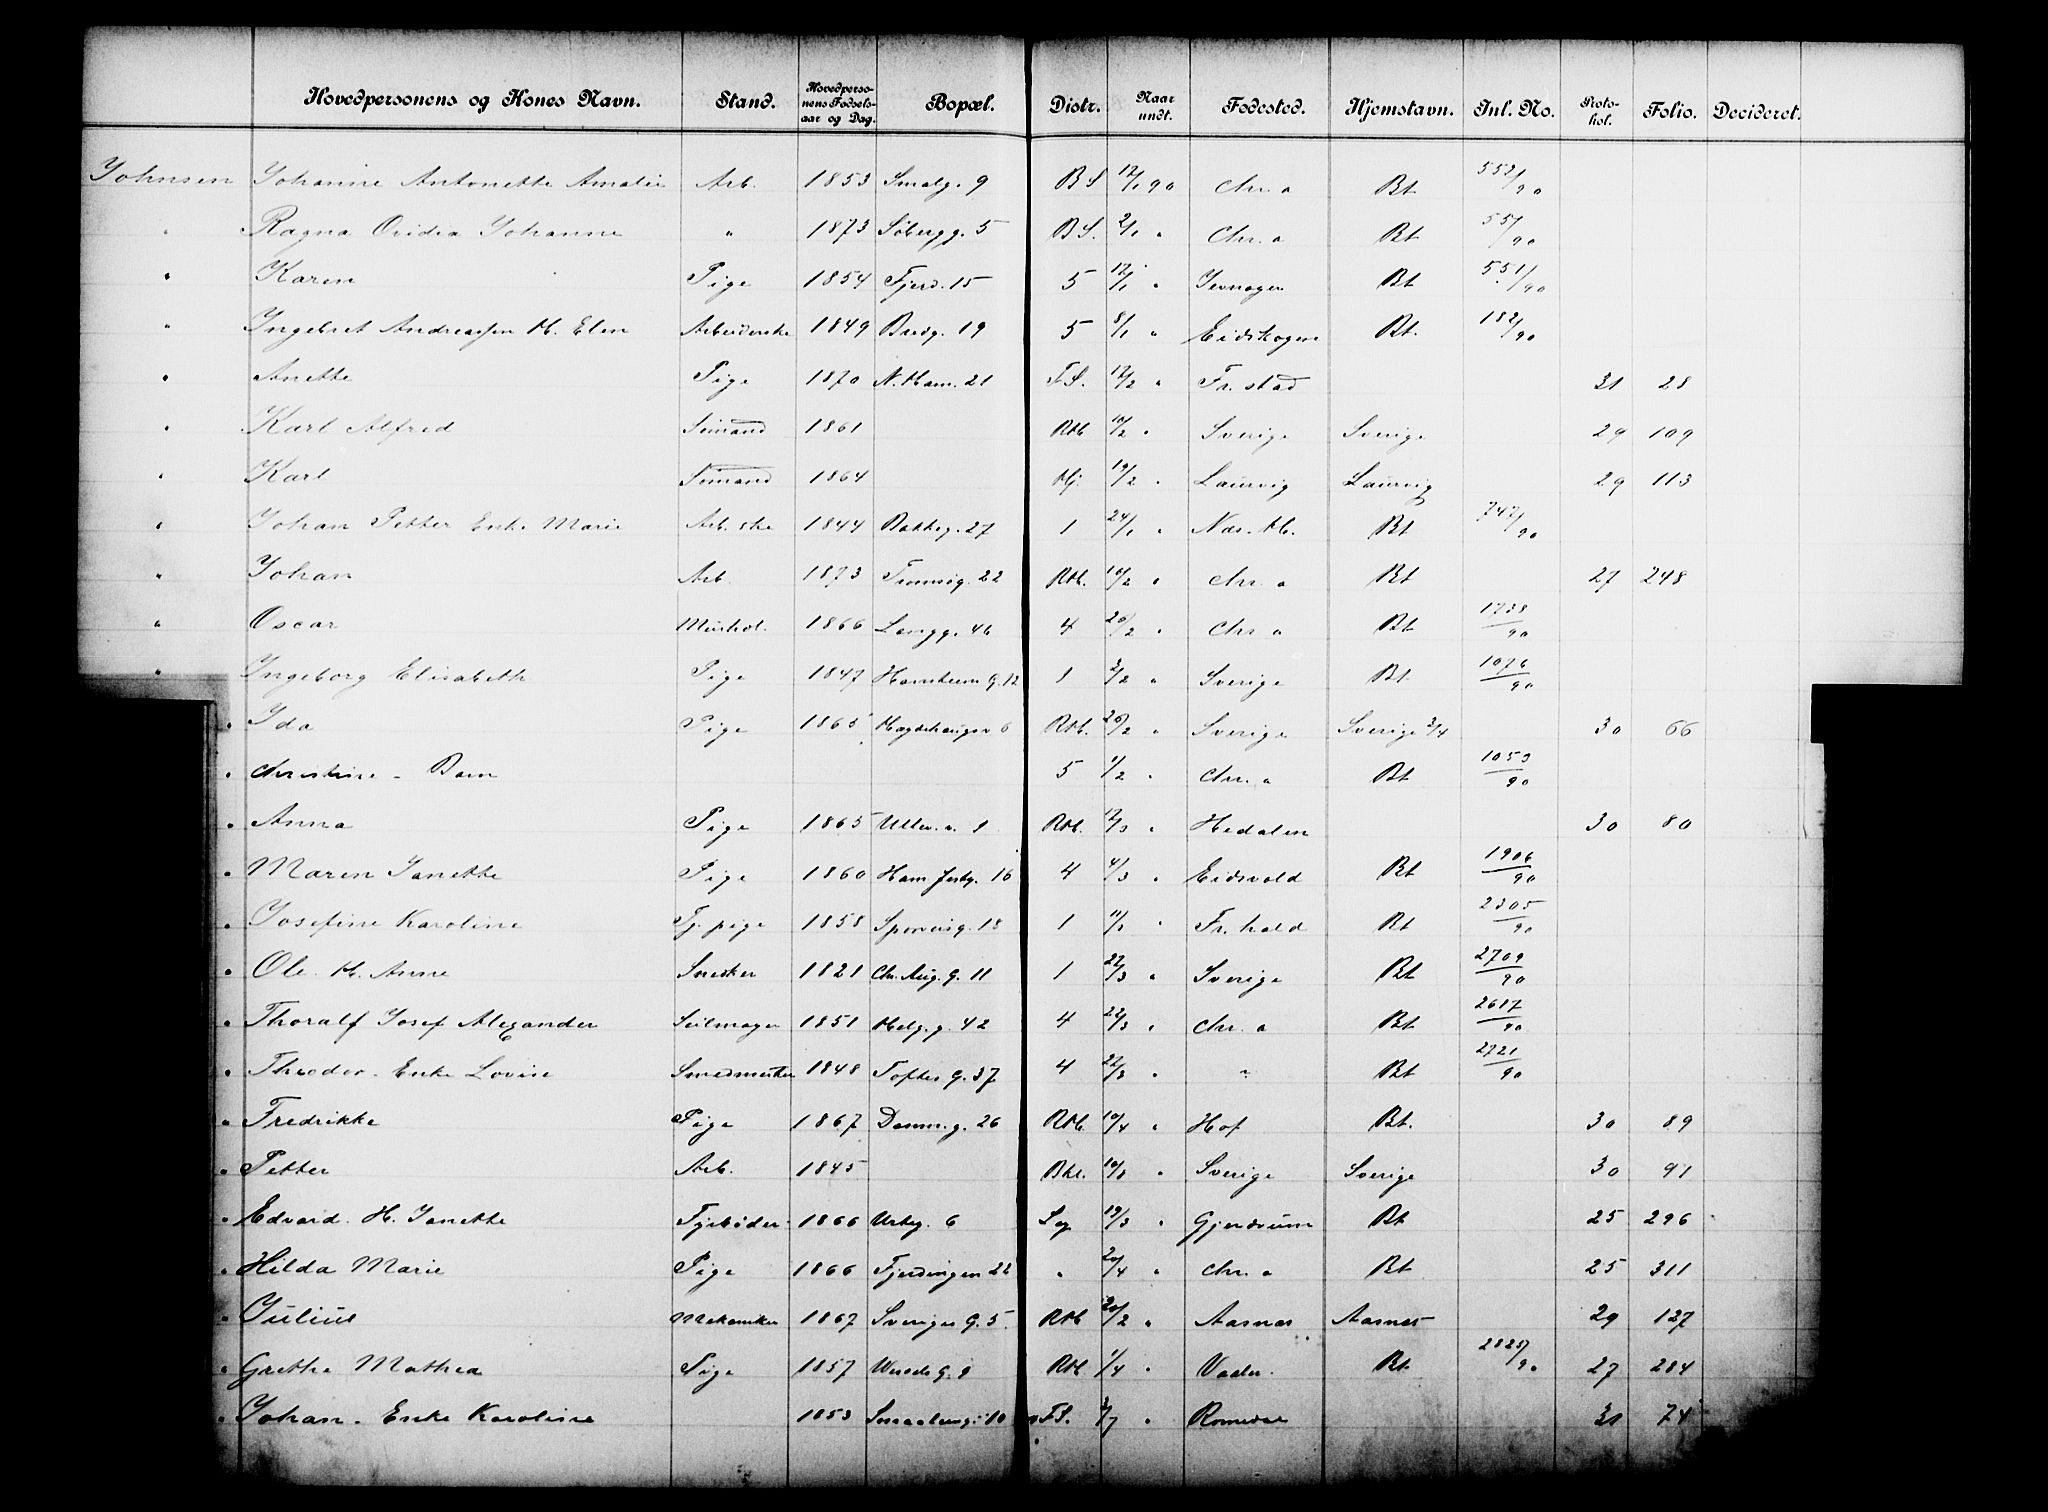 Hovedpersonens og Kones Navn. Stand. Hovedpersonens Fødselsaar og Dag. Bopæl. Distr. Naar undt. Fødested. Hjemstavn. Inl. No. Protokol. Folio. Decideret.
Johnsen Johanne Antonette Amalie Arb. 1853 Smalg. 9 BS 12/1 90 Chr.a Bt 552/90
" Ragna Ovidia Johanne " 1873 Søbergg. 5 BS. 2/1 " Chr.a Bt 55/90
" Karen Pige 1854 Fjerd. 15 5 12/1 " Jevnager Bt 551/90
" Ingebret Andreassen H. Elen Arbeiderske 1849 Bredg. 19 5 8/1 " Eidskogen Bt. 182/90
" Anette Pige 1870 N. Ham. 21 FS. 12/2 " Fr.stad 31 28
" Karl Alfred Sømand 1861 Rth 10/2 " Sverige Sverige 29 109
" Karl Sømand 1864 Hj. 19/2 " Laurvig Laurvig 29 113
" Johan Petter Enke Marie Arb.ske 1844 Bakkeg. 27 1 24/1 " Næs. H. Bt 747/90
" Johan Arb. 1873 Tromsøg. 22 Rth. 10/2 " Chr.a Bt 27 248
" Oscar Murhdt. 1866 Langg. 46 4 20/2 " Chr.a Bt 1738/90
" Ingeborg Elisabeth Pige 1847 Hausheim G. 12 1 3/2 " Sverige Bt. 1076/90
" Ida Pige 1865 Hægdehaugsv 6 Rth. 26/2 " Sverige Sverige 2/4 30 66
" Christine - Barn 5 1/2 " Chr.a Bt 1053/90
" Anna Pige 1865 Ullev.v. 1 Rth. 12/3 " Hedalen 30 80
" Maren Janette Pige 1860 Hamferbg. 16 4 4/3 " Eidsvold Bt 1906/90
" Josefine Karoline Tj.pige 1858 Sporveisg. 18 1 11/3 " Fr.hald Bt 2305/90
" Ole. H. Anne Snedker 1821 Chr. Aug. G. 11 1 22/3 " Sverige Bt 2709/90
" Thoralf Josef Alexander Seilmager 1851 Helg.g. 42 4 22/3 " Chr.a Bt 2617/90
" Theodor. Enke Lovise Smedmester 1848 Toftes G. 37 4 22/3 " " Bt 2721/90
" Fredrikke Pige 1867 Damm.g. 26 Rth. 10/4 " Hof Bt. 30 89
" Petter Arb. 1845 Bkl. 10/3 " Sverige Sverige 30 91
" Edvard. H. Janette Fyrbøder 1866 Urteg. 6 Sg 19/3 " Gjerdrum Bt 25 296
" Hilda Marie Pige 1866 Fjerdingen 22 " 20/4 " Chr.a Bt 25 311
" Julius Mekaniker 1867 Sveriges G. 5. Rth 20/2 " Aasnæs Aasnæs 29 127
" Grethe Mathea Pige 1857 Wessels G. 9 Rth. 1/4 " Vaaler. Bt 2825/90 27 284
" Johan. Enke Karoline 1853 Smaalensg. 10 FS. 3/7 " Romedal 31 74